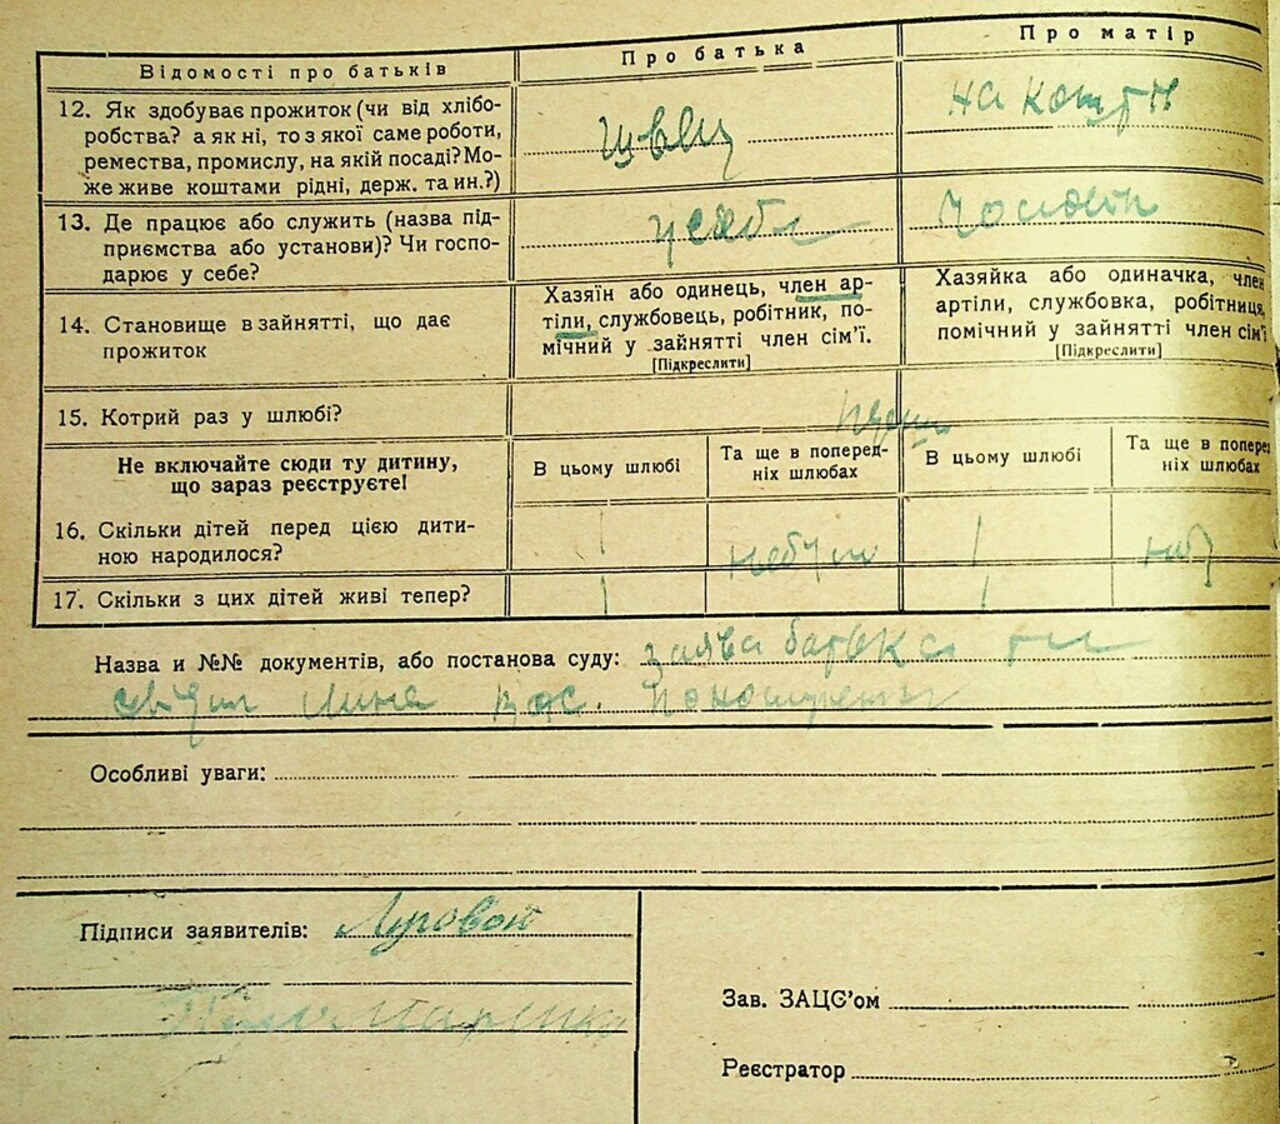 Відомості про батьків
Про батька
Про матір
12. Як здобуває прожиток (чи від хлібо-
робства? а як ні, то з якої саме роботи,
ремества, промислу, на якій посаді? Мо-
же живе коштами рідні, держ. та ин.?)
швец
на кошти
13. Де працює або служить (назва під-
приємства або установи)? Чи госпо-
дарює у себе?
14. Становище в зайнятті, що дає
прожиток
Хазяїн або одинець, член ар-
тіли, службовець, робітник, по-
мічний у зайнятті член сім'ї.
[Підкреслити]
Хазяйка або одиначка, член
артіли, службовка, робітниця,
помічний у зайнятті член сім'ї
[Підкреслити]
15. Котрий раз у шлюбі?
Не включайте сюди ту дитину,
що зараз реєструєте!
В цьому шлюбі
Та ще в поперед-
ніх шлюбах
В цьому шлюбі
Та ще в поперед
ніх шлюбах
16. Скільки дітей перед цією дити-
ною народилося?
1
небули
1
17. Скільки з цих дітей живі тепер?
1
1
Назва и №№ документів, або постанова суду: заява батька
Особливі уваги:
Підписи заявителів: Луговой
Зав. ЗАЦС'ом
Реєстратор